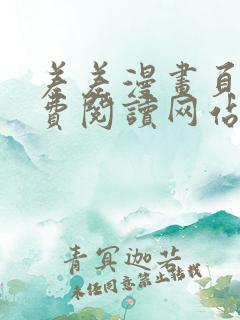 羞羞漫畫頁
費閱讀网站
青冥迦若
未经同意禁止转载